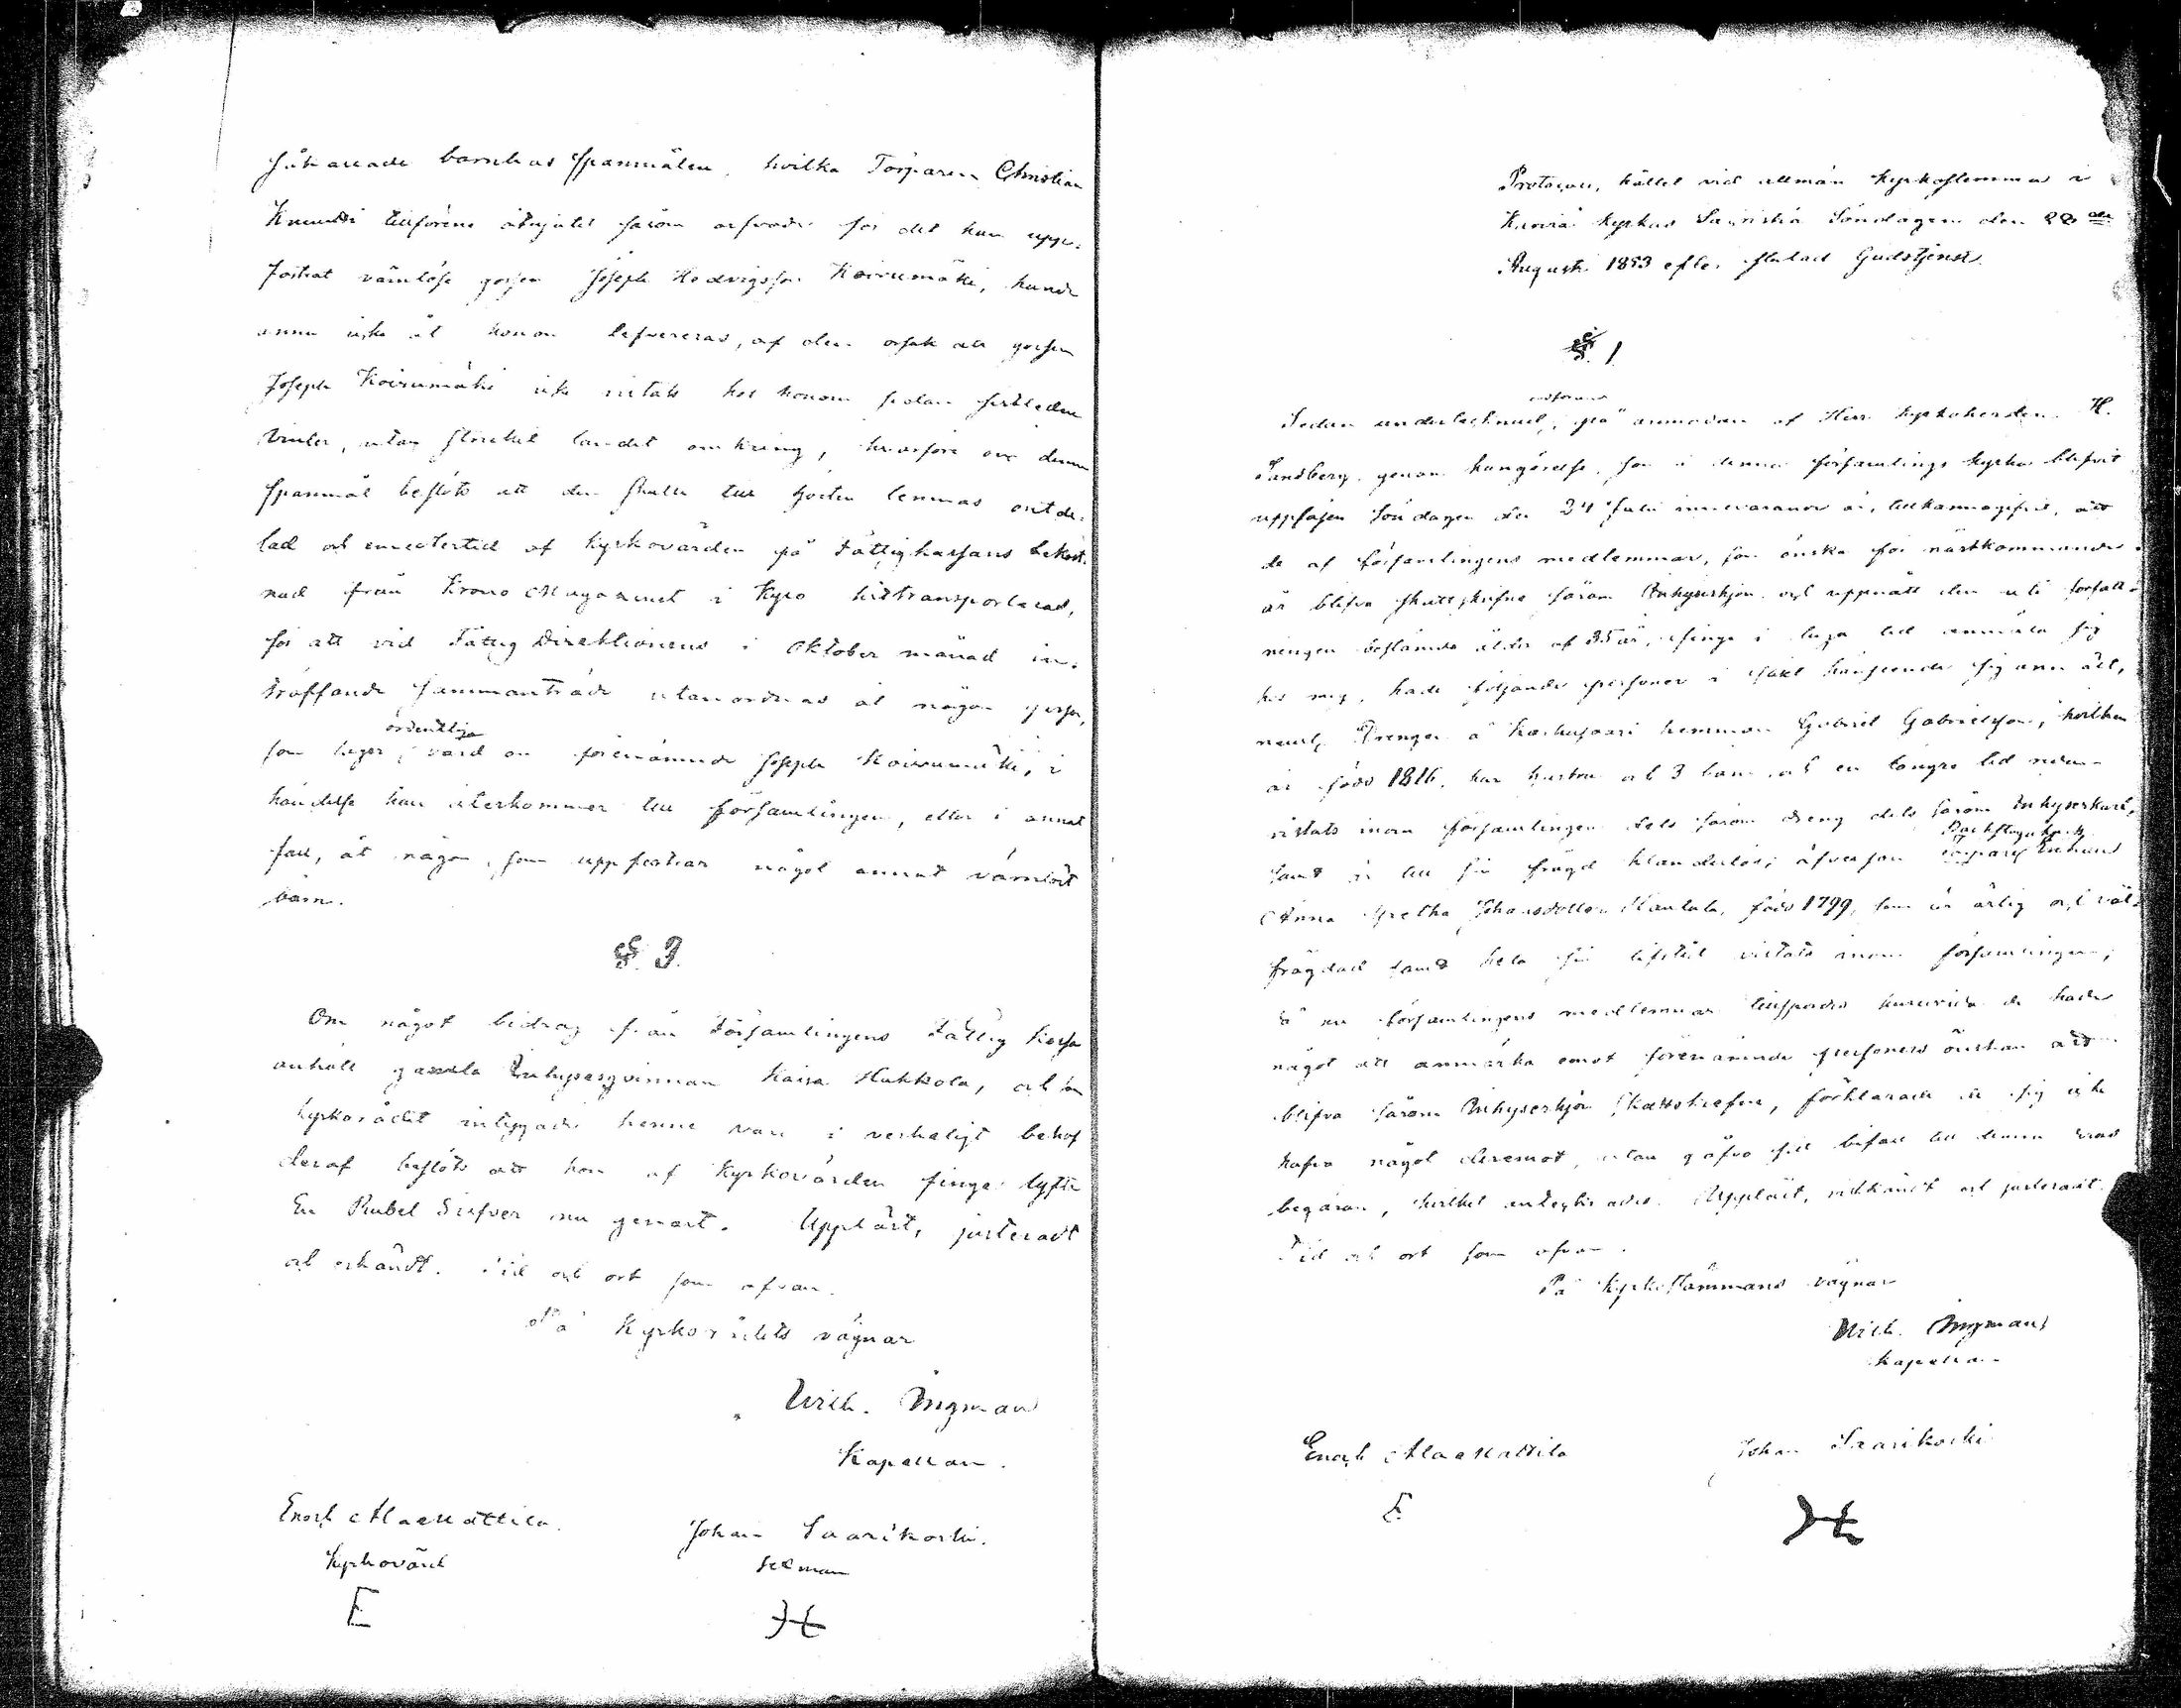 såkallade barnhus spanmålen, hvilka Torparen Christian
Knuuti tillförene åtnjutit såsom arfvode för det han upp-
fostrat värnlösa gossen Joseph Hedvigsson Koivumäki, kunde
annu icke åt honom lefvereras, af den orsak att gossen
Joseph Koivumäki icke vistats hos honom sedan sistledne
Vinter, utan strukit landet omkring, hvarföre ock denna
spanmål beslöts att den skulle till hösten lemnas outde-
lad och emedlertid af Kyrkovärden på Fattigkassans bekost-
nad från Krono Magazinet i Kyro hittransporteras,
för att vid Fattig Direktionens i Oktober månad in-
träffande sammanträde utanordnas åt någon person,
ordentlig
som tager vård om förenämnde Joseph Koivumäki, i
händelse han återkommer till församlingen, eller i annat
fall, åt någon, som uppfostrar något annat värnlöst
barn.
§. 3.
Om något bidrag från Församlingens Fattig Kassa
anhöll gamla Inhysesqvinnan Kaisa Hukkola, och som
kyrkorådet intygade henne vara i verkeligt behof
deraf beslöts att hon af Kyrkovärden finge lyfta
En Rubel Silfver nu genast. Uppläst, justeradt
och erkändt. Tid och ort som ofvan.
På Kyrkorådets vägnar
Wilh. Ingman
Kapellan.
Enoch Alamattila. Johan Saarikoski.
Kyrkovärd sexman
E H
Protocoll, hållet vid allmän Kyrkostemma i
Kyrka Söndagen den 28de
Augusti 1853 efter slutad Gudstjenst.
§. 1
Sedan undertecknad, på anmodan af Herr Kyrkoherden H.
Sandberg, genom kungörelse, som i denna församlings kyrka blifvit
uppläsen Söndagen den 24 Juli innevarande år, tillkännagifvit, att
de af församlingens medlemmar, som önska för nästkommande
år blifva skattskrifne såsom Inhyseshjon och uppnått den uti författ-
ningen bestämda ålder af 35 år, finge i laga tid anmäla sig
hos mig, hade följande personer i sådant hänseende sig anmält,
neml. Drengen å Karhusaari hemman Gabriel Gabrielsson, hvilken
är född 1816, har hustru och 3 barn och en längre tid redan
vistats inom församlingen dels såsom dreng dels såsom Inhyseskarl,
Backstuguhjon
samt är till sin frägd klanderlös; äfvensom Enkan
Anna Gretha Johansdotter Mantala, född 1799, som är ärlig och väl-
frägdad samt hela sin lifstid vistats inom församlingen;
Då nu församlingens medlemmar tillspordes huruvida de hade
något att anmärka emot förenämnde personers önskan att
blifva såsom Inhyseshjon skattskrefne, förklarade de sig icke
hafva något deremot, utan gåfvo sitt bifall till denna deras
begäran, hvilket antecknades. Uppläst, vidkändt och justeradt.
Tid och ort som ofvan.
På Kyrkostämmans vägnar
Wilh. Ingman
Kapellan
Enoch Alamattila Johan Saarikoski
E H